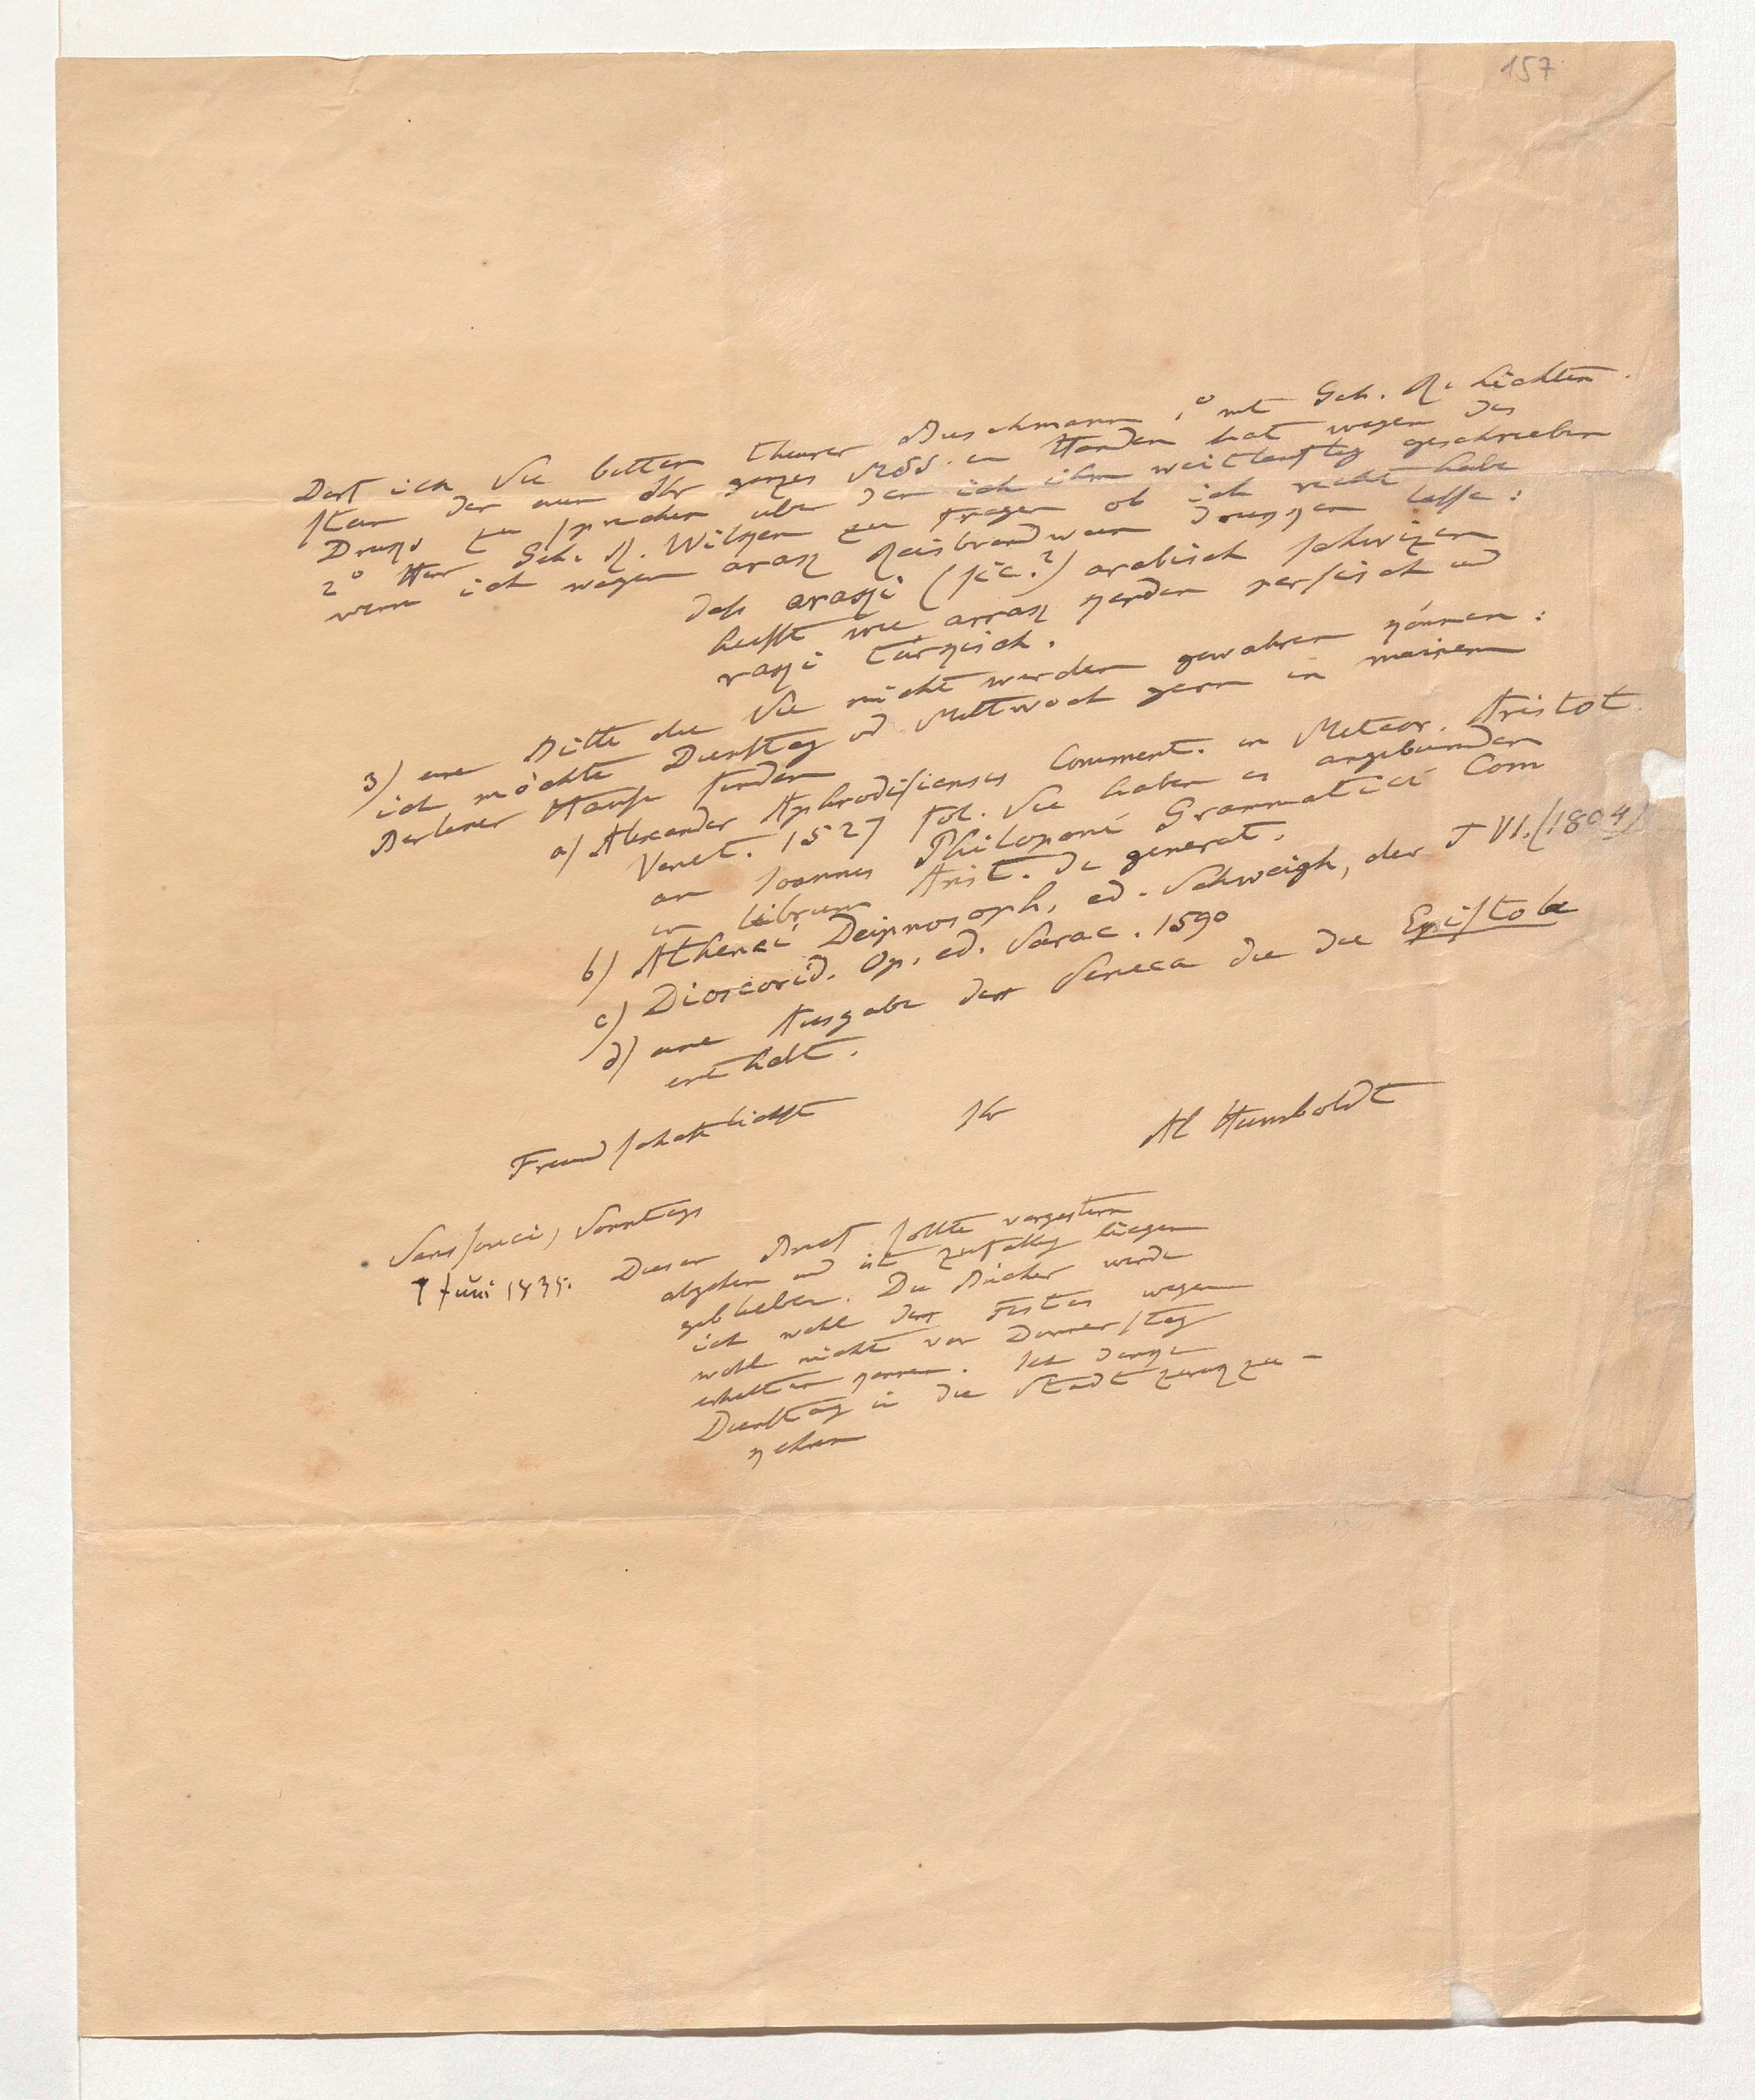 157
Darf ich Sie bitten theurer Buschmann 1° mit Geh. R. Lichten
stein der nun Ihr ganzes MSS. in Händen hat wegen des
Druks zu sprechen über den ich ihm weitlauftig geschrieben
2° Herr Geh. R. Wilken zu fragen ob ich recht habe
wenn ich wegen arak Reisbrandwein drukken lasse:
daß araki (sic?) arabisch schwizen
heißt wie arrak kerden persisch und
raki türkisch.
3) eine Bitte die Sie nicht werden gewahren können:
ich möchte Dienstag od Mittwoch gern in meinem
Berliner Hause finden
a) Alexander Aphrodisiensis Comment. in Meteor. Aristot.
Venet. 1527 fol. Sie haben es angebunden
an Joannes Philoponi Grammatici Com
in librum Arist. de generat.
b) Athenei Deipnosoph. ed. Schweigh, der T VI. (1804)
c) Dioscorid. Op. ed. Sarac. 1590
d) eine Ausgabe des Seneca die die Epistolae
enthalt.
Freundschaftlichst Ihr Al Humboldt
Sanssouci, Sonntags
7 Juni 1835. Dieser Brief sollte vorgestern
abgehen und ist zufallig liegen
geblieben. Die Bücher werde
ich wohl des Festes wegen
wohl nicht vor Donnerstag
erhalten konnen. Ich denke
Dienstag in die Stadt zurukzu-
kehren